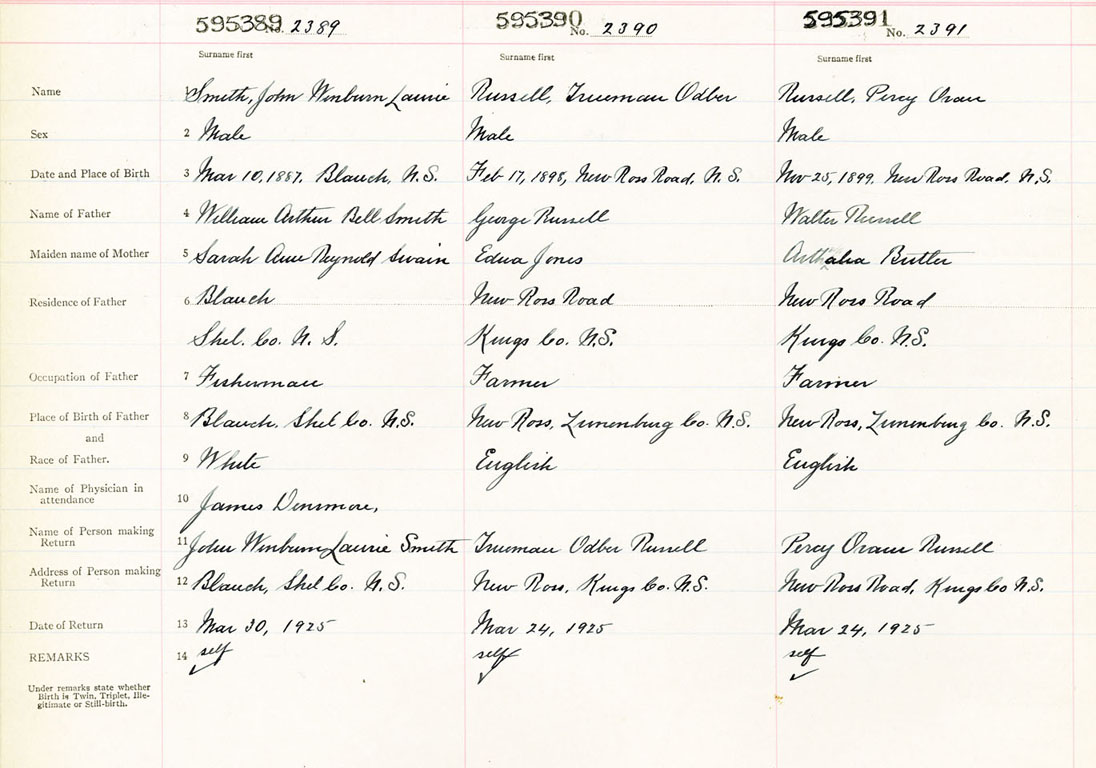 595389 No. 2389 595390 No. 2390 595391 No. 2391
Surname first Surname first Surname first
Name 1 Smith, John Winburn Laurie Russell, Trueman Odber Russell, Percy Oram
Sex 2 Male Male Male
Date and Place of Birth 3 Mar 10, 1887, Blanch, N.S. Feb 17, 1898, New Ross Road, N.S. Nov 25, 1899, New Ross Road, N.S.
Name of Father 4 William Arthur Bell Smith George Russell Walter Russell
Maiden name of Mother 5 Sarah Ann Reynold Swain Edna Jones Butler
Residence of Father 6 Blanch New Ross Road New Ross Road
Shel. Co. N. S. Kings Co. N.S. Kings Co. N.S.
Occupation of Father 7 Fisherman Farmer Farmer
Place of Birth of Father 8 Blanch, Shel Co. N.S. New Ross, Lunenburg Co. N.S. New Ross, Lunenburg Co. N.S.
and
Race of Father. 9 White English English
Name of Physician in
attendance 10 James Densmore,
Name of Person making
Return 11 John Winburn Laurie Smith Trueman Odber Russell Percy Oram Russell
Address of Person making
Return 12 Blanch, Shel Co. N.S. New Ross, Kings Co. N.S. New Ross Road, Kings Co N.S.
Date of Return 13 Mar 30, 1925 Mar 24, 1925 Mar 24, 1925
REMARKS 14 self self self
Under remarks state whether
Birth is Twin, Triplet, Ille-
gitimate or Still-birth.